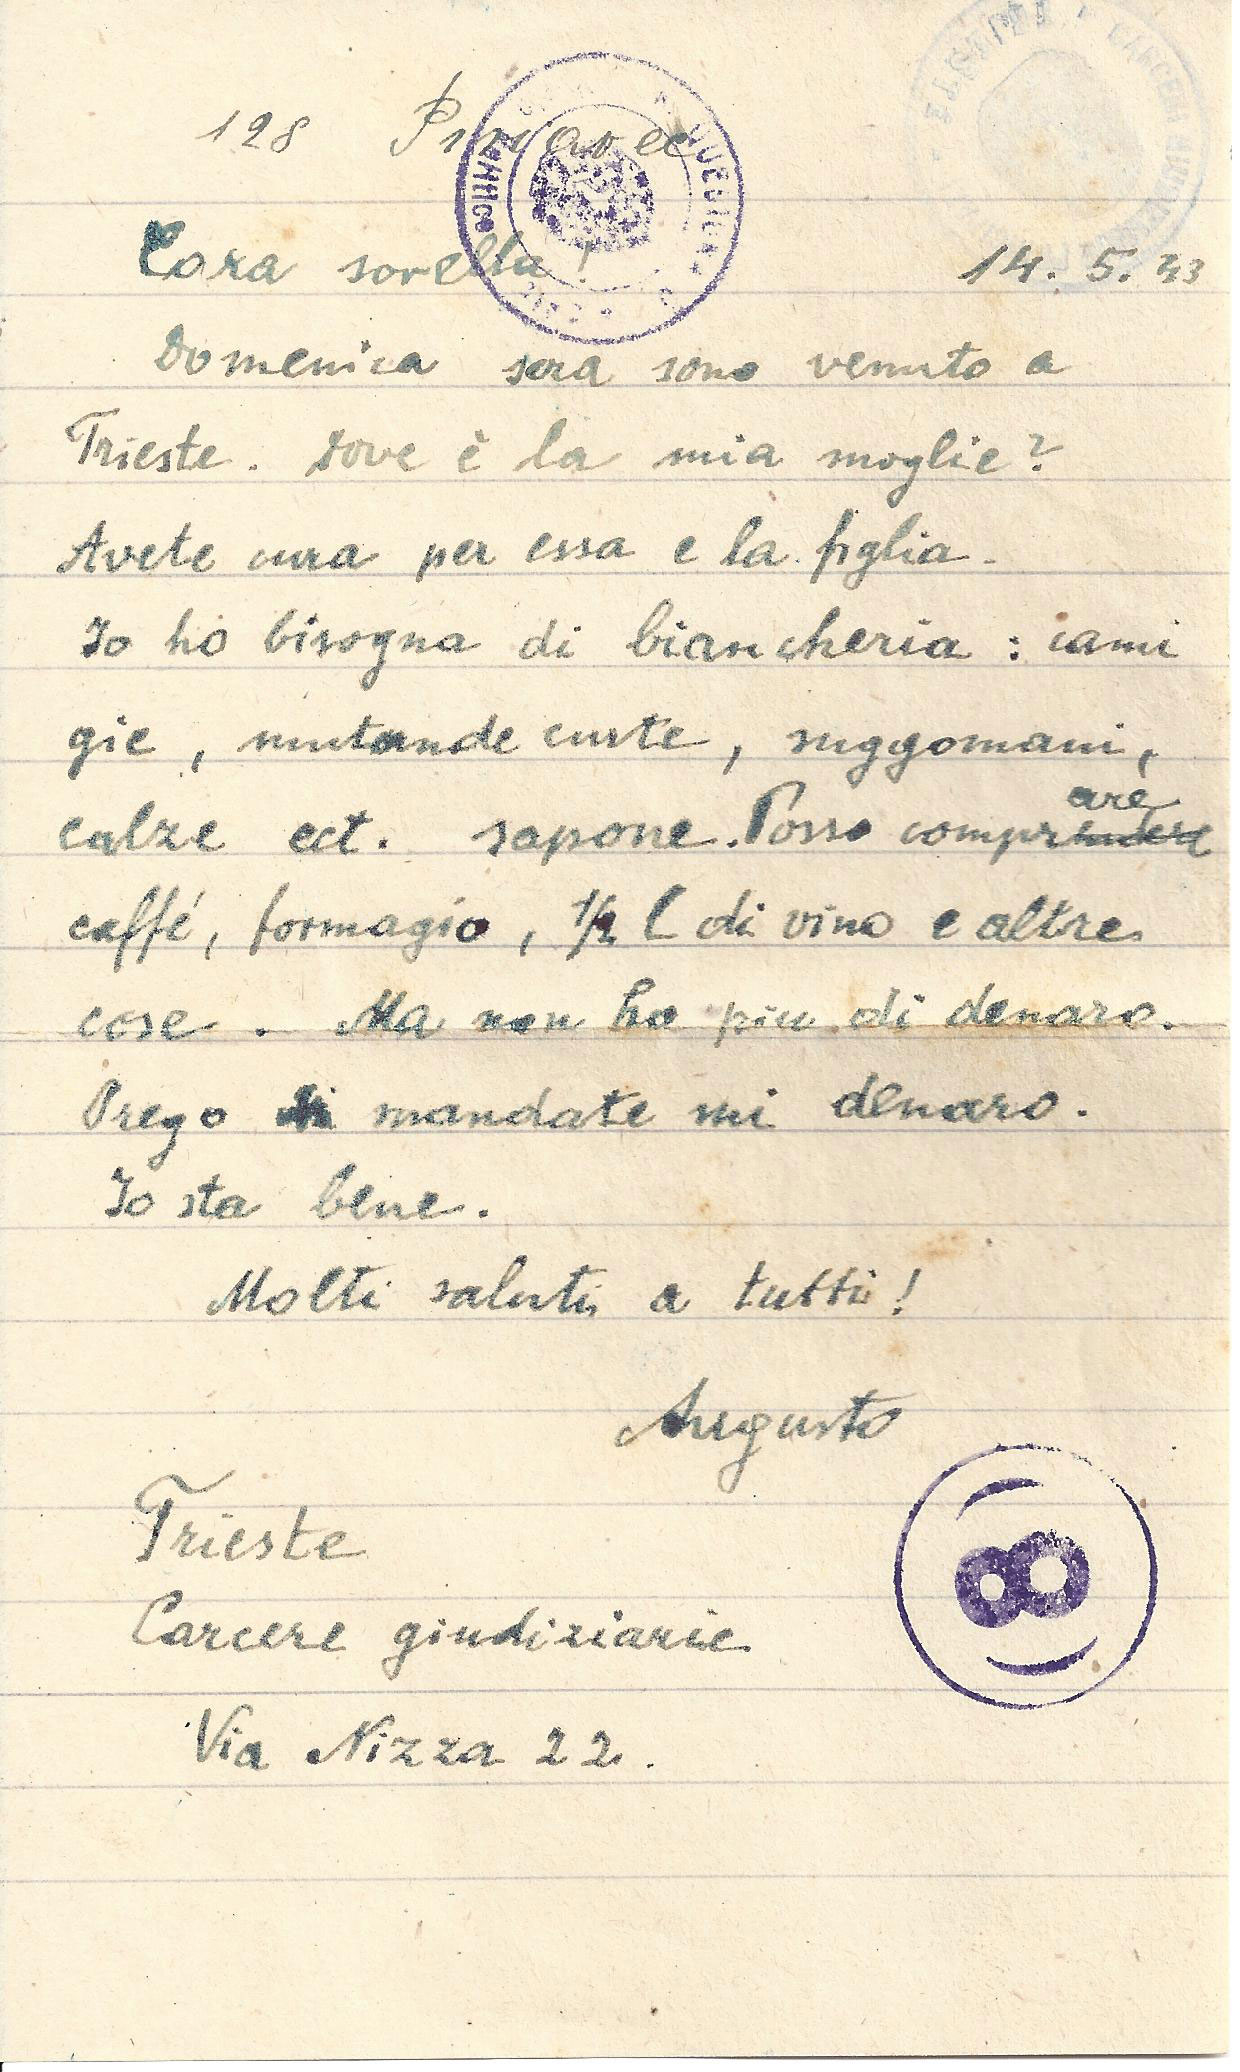 128
Cara sorella! 14. 5. 43
Domenica sera sono venuto a
Trieste. Dove è la mia moglie?
Avete cura per essa e la figlia.
Io ho bisogna di biancheria: cami
gie, mutande curte, suggomani,
calze ect. sapone. Posso comprendere are
caffé, formagio, 1/2 l di vino e altre
cose. Ma non ho piu di denaro.
Prego mandate mi denaro.
Io sta bene.
Molti saluti a tutti!
Augusto
Trieste
8
Carcere giudiziarie
Via Nizza 22.